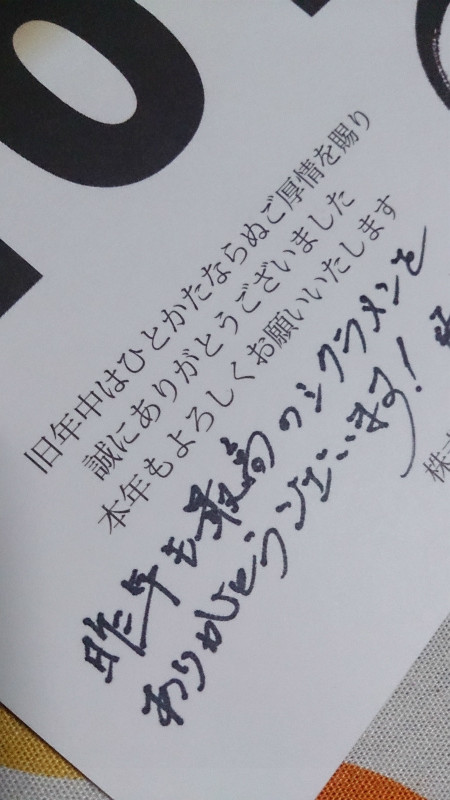 旧年中はひとかたならぬご厚情を賜り
誠にありがとうございました
本年もよろしくお願いいたします
昨年も最高のシクラメンを
ありがとうございます！
株式